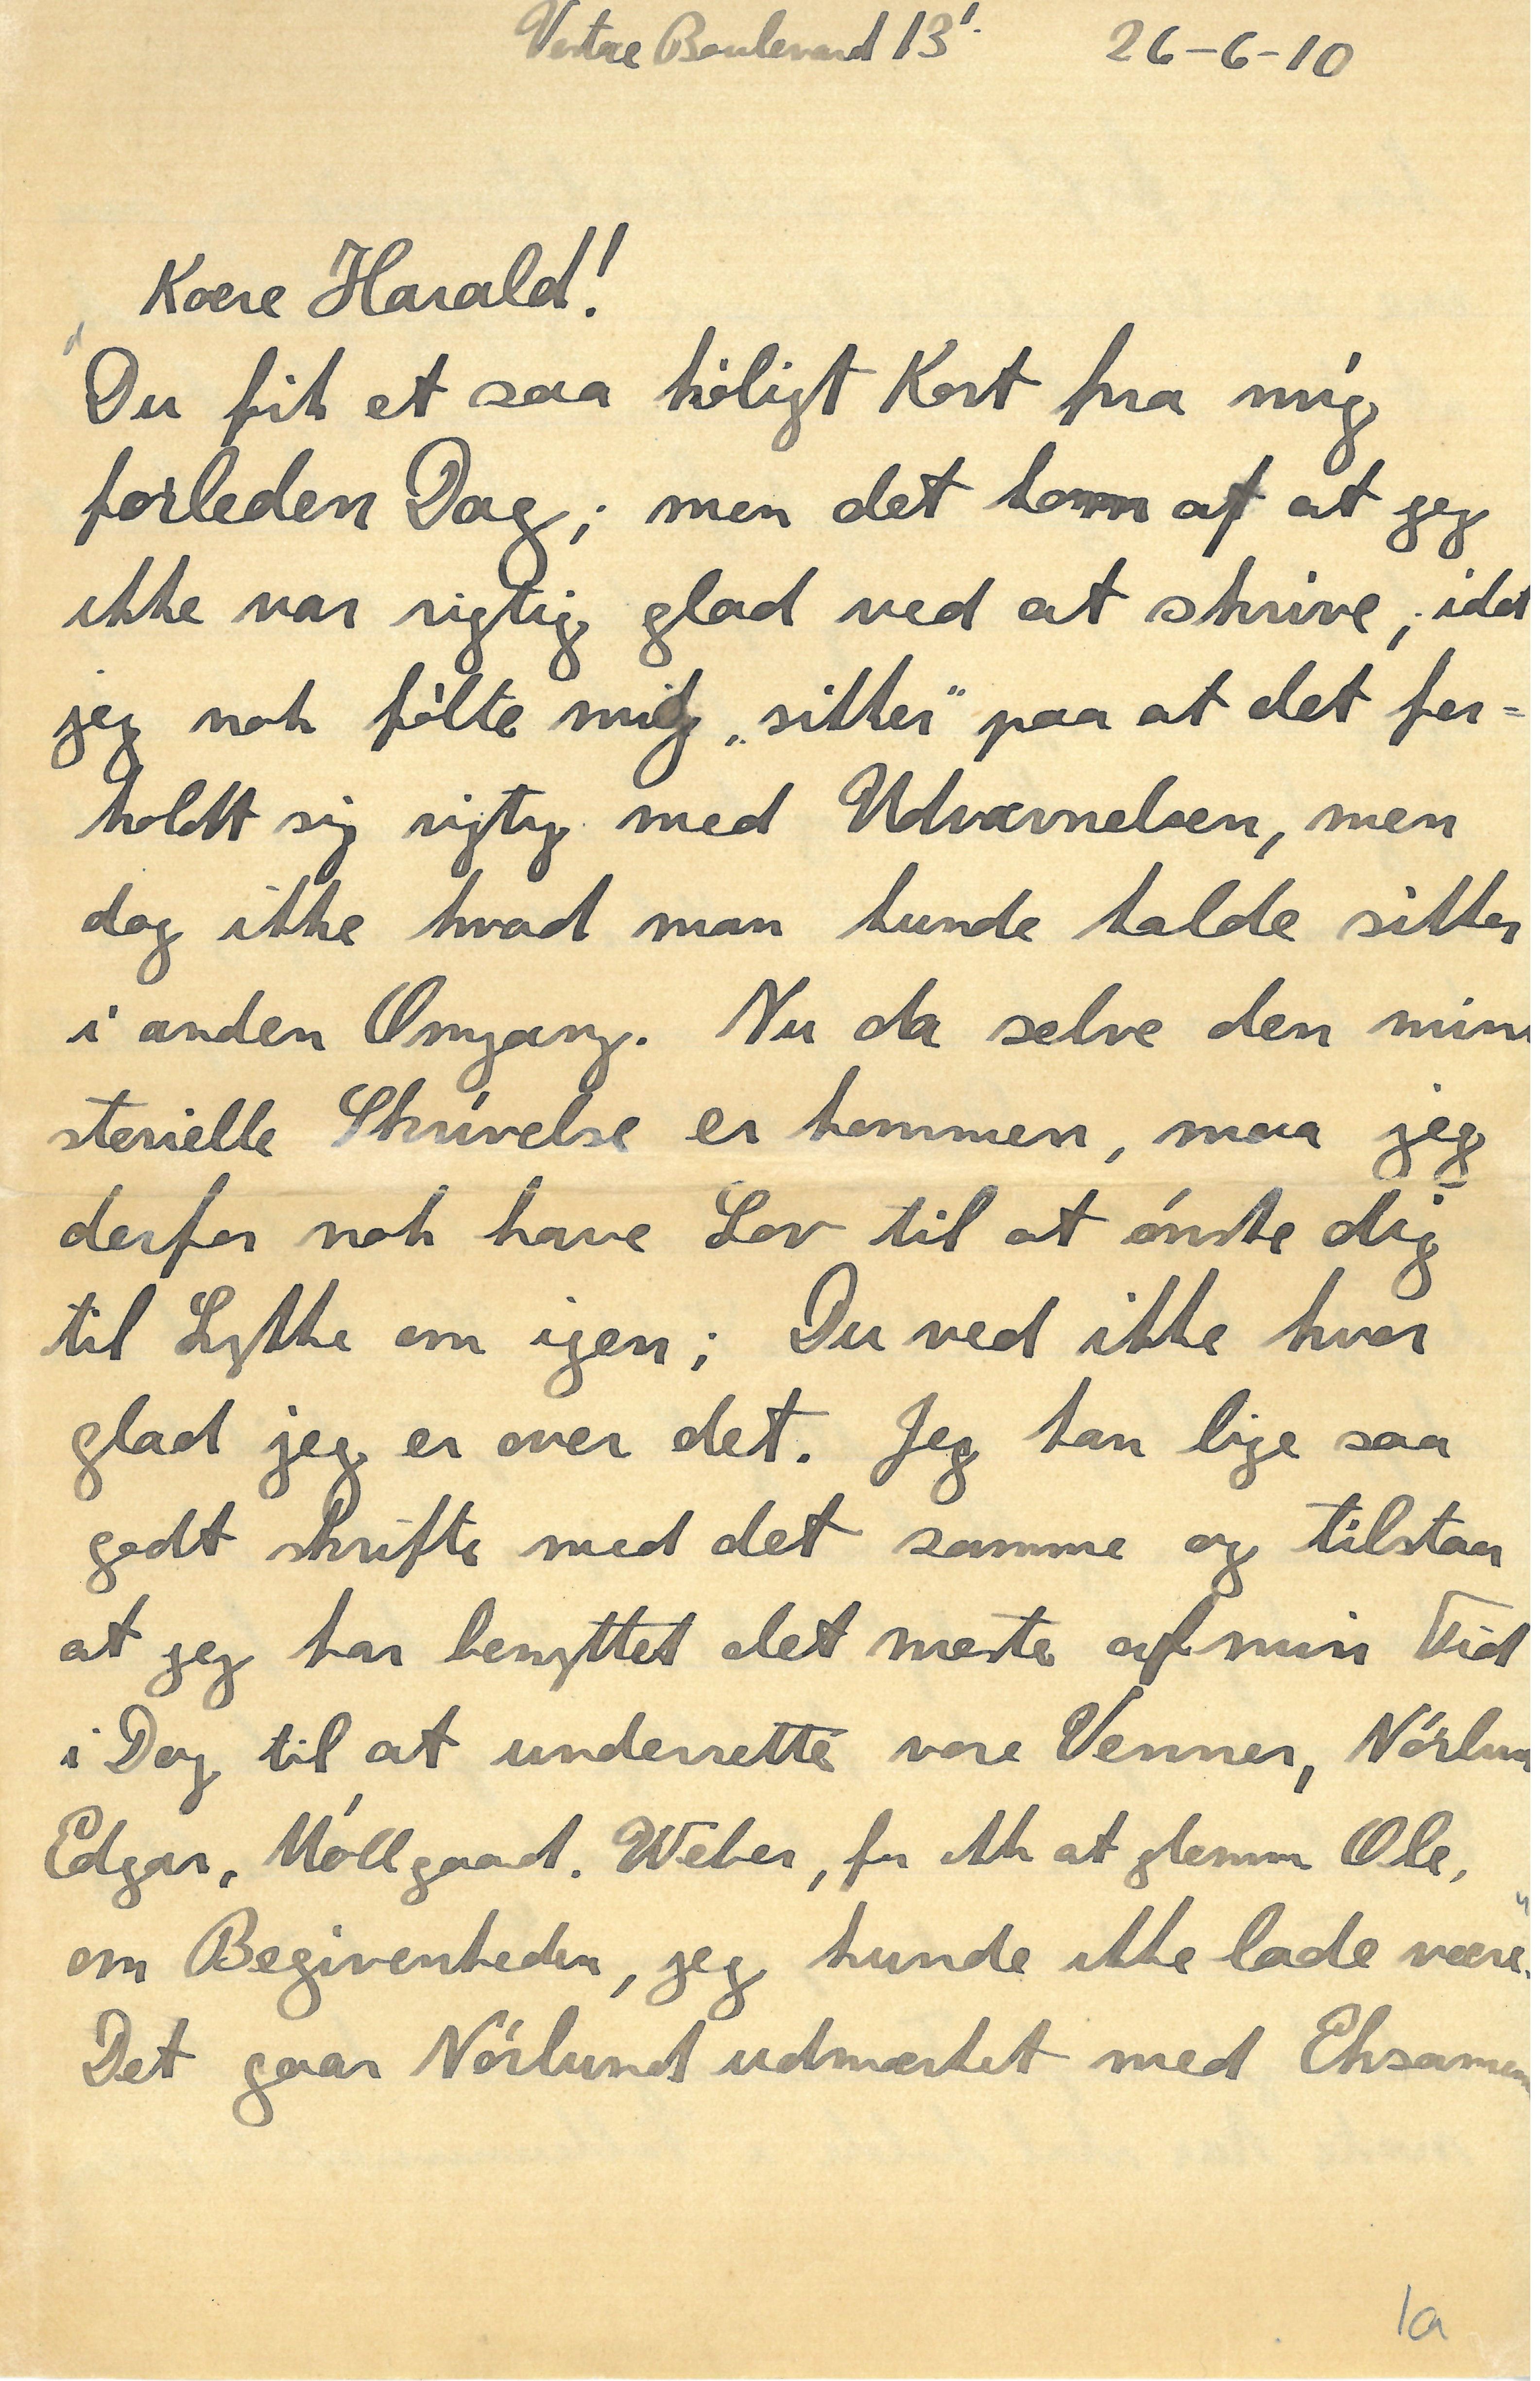 Vestre Boulevard 13¹· 26-6-10
Kære Harald!
Du fik et saa køligt Kort fra mig
forleden Dag; men det kom af at jeg
ikke var rigtig glad ved at skrive, idet
jeg nok følte mig „sikker” paa at det for-
holdt sig rigtig med Udnævnelsen, men
dog ikke hvad man kunde kalde sikker
i anden Omgang. Nu da selve den mini
sterielle Skrivelse er kommen, maa jeg
derfor nok have Lov til at ønske dig
til Lykke om igen; Du ved ikke hvor
glad jeg er over det. Jeg kan lige saa
godt skrifte med det samme og tilstaa
at jeg har benyttet det meste af min Tid
i Dag til at underrette vore Venner, Nørlun
Edgar, Møllgaard. Weber, for ikk at glemme Ole,
om Begivenheden, jeg kunde ikke lade være.
Det gaar Nørlund udmærket med Eksamen
1a